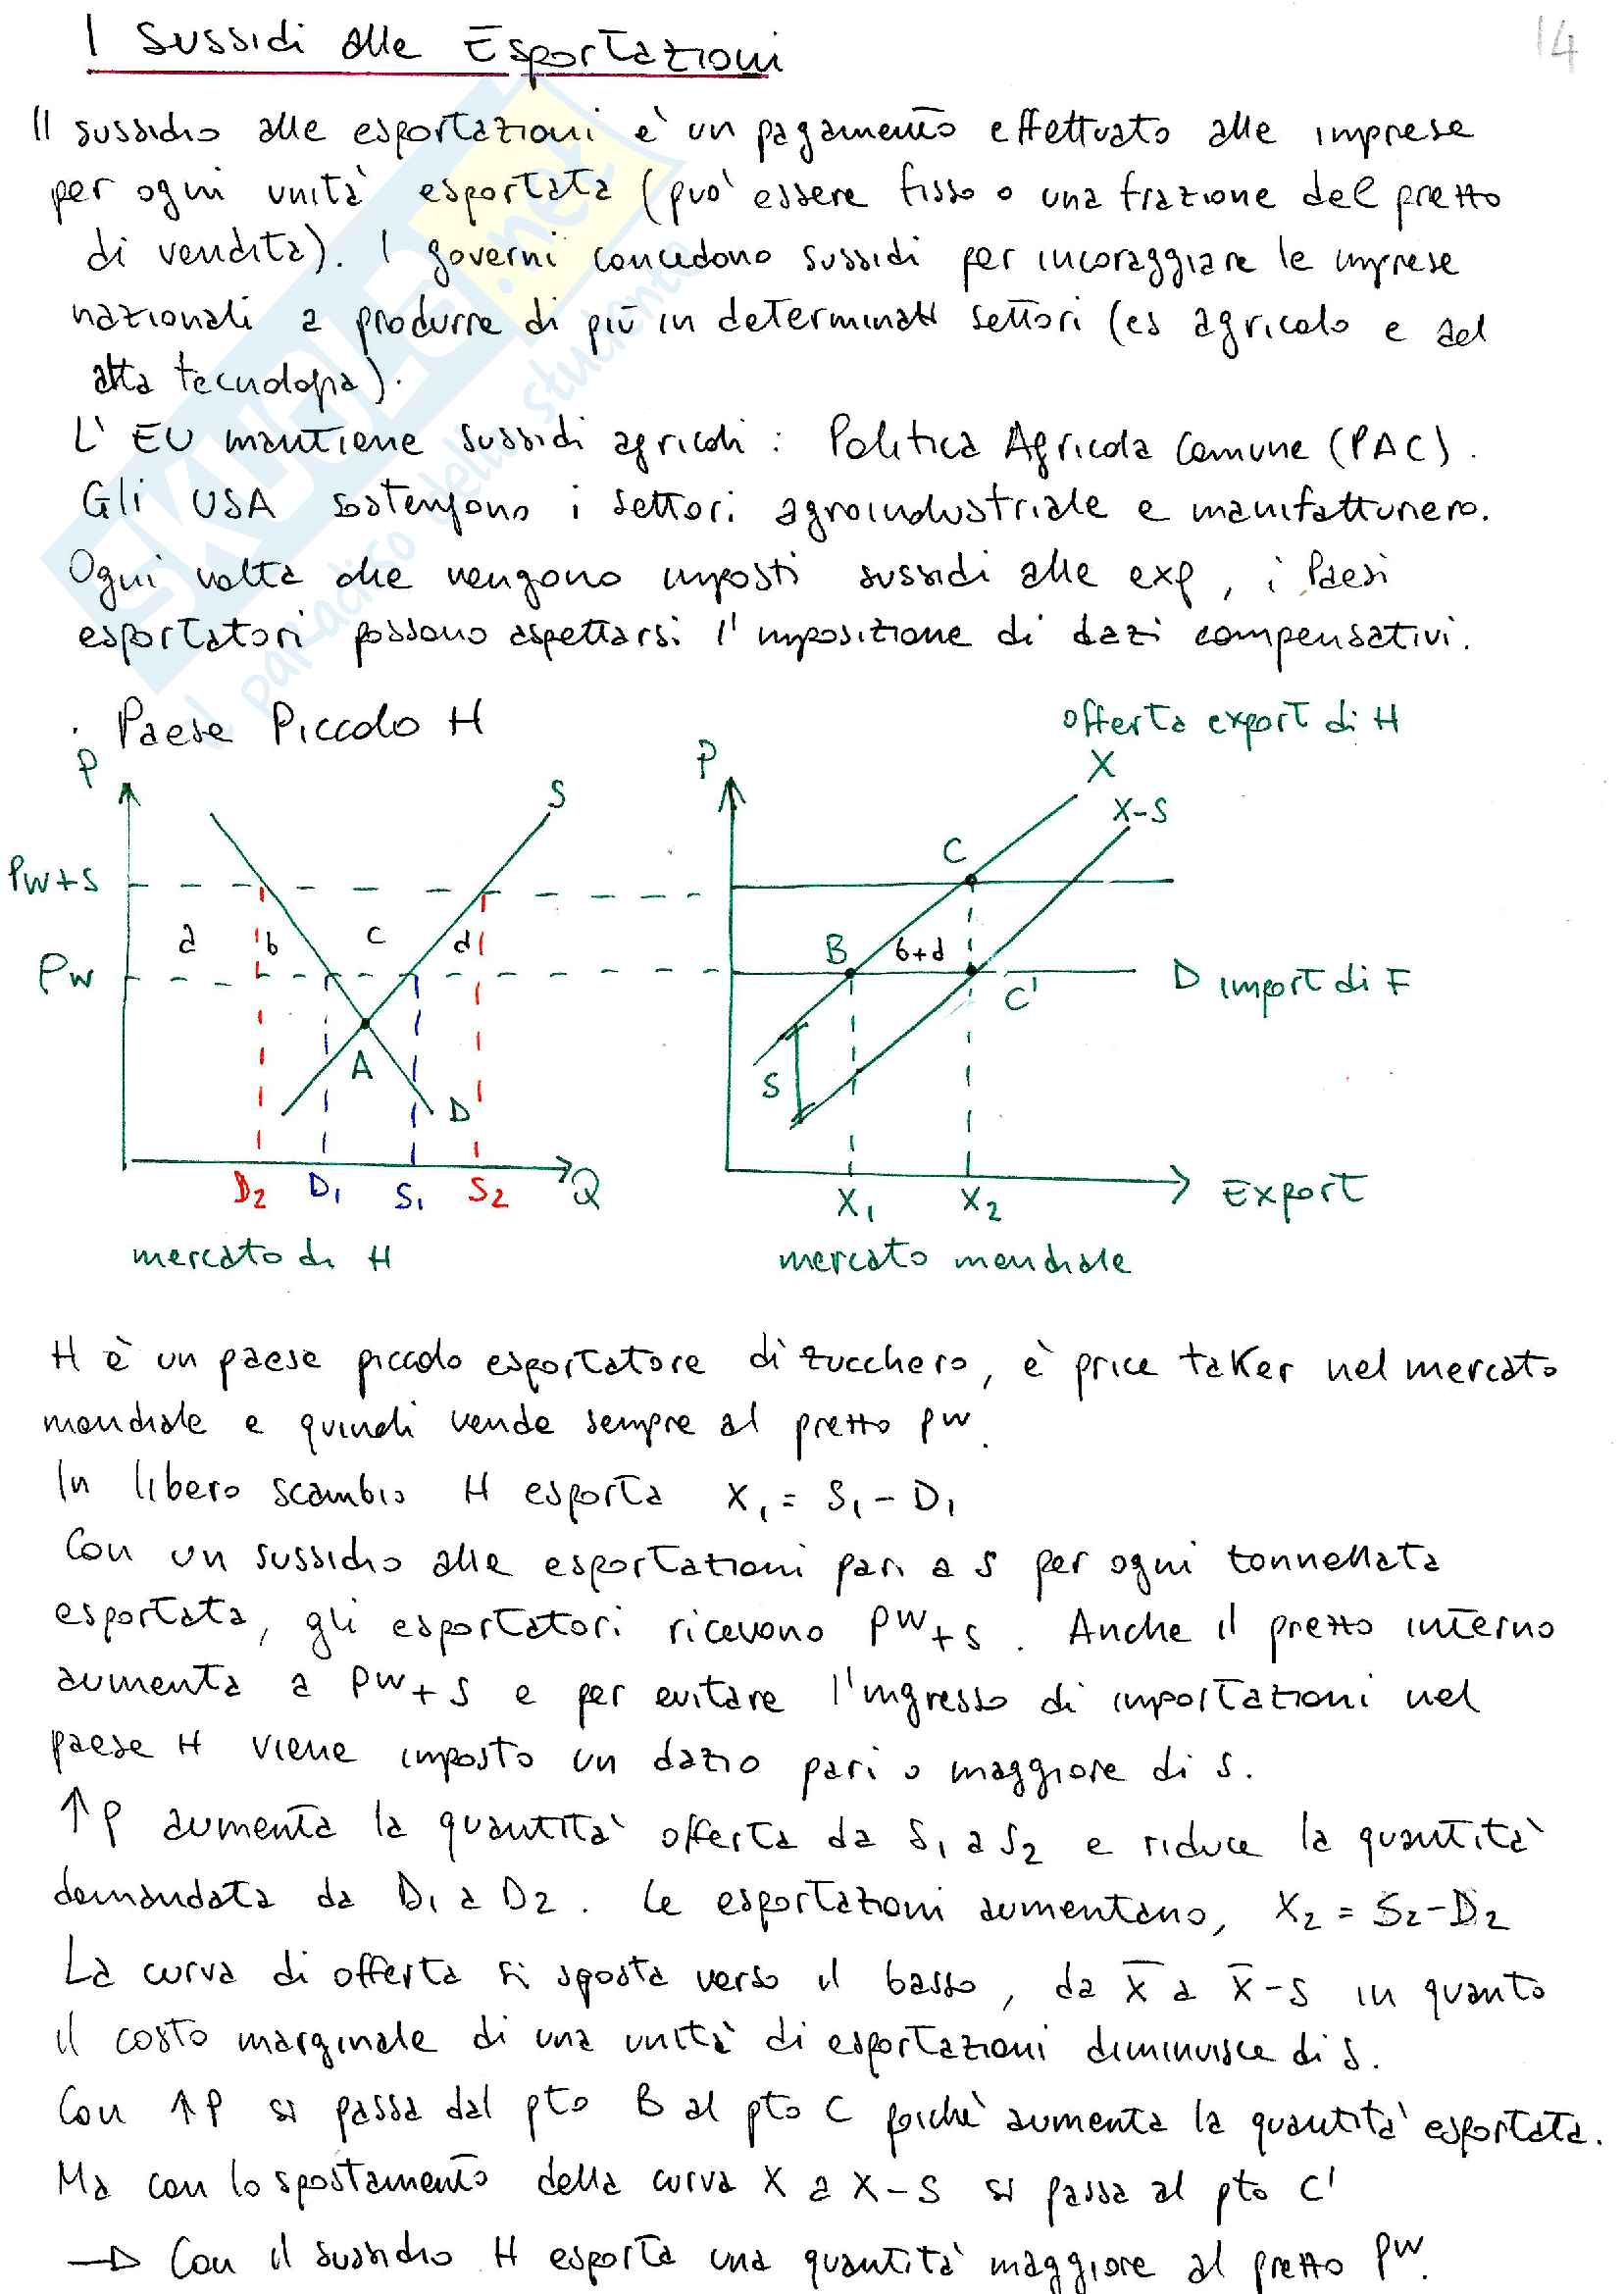 I Sussidi alle Esportazioni
14
Il sussidio alle esportazioni è un pagamento effettuato alle imprese
per ogni unità esportata (può essere fisso o una frazione del prezzo
di vendita). I governi concedono sussidi per incoraggiare le imprese
nazionali a produrre di più in determinati settori (es agricolo e ad
alta tecnologia).
L'EU mantiene sussidi agricoli: Politica Agricola Comune (PAC).
Gli USA sostengono i settori agroindustriale e manifatturiero.
Ogni volta che vengono imposti sussidi alle exp, i Paesi
esportatori possono aspettarsi l'imposizione di dazi compensativi.
SKUOLA.net
il paradiso dello studente
. Paese Piccolo H
offerta export di H
P
S
Pw+s
a b c d
Pw
A
D
D2 D1 S1 S2 Q
mercato di H
P
X
X-S
C
B b+d
C'
D import di F
S
X1 X2 Export
mercato mondiale
H è un paese piccolo esportatore di zucchero, è price taker nel mercato
mondiale e quindi vende sempre al prezzo pw.
In libero scambio H esporta X1 = S1 - D1
Con un sussidio alle esportazioni pari a s per ogni tonnellata
esportata, gli esportatori ricevono pw+s. Anche il prezzo interno
aumenta a pw+s e per evitare l'ingresso di importazioni nel
paese H viene imposto un dazio pari o maggiore di s.
↑p aumenta la quantità offerta da S1 a S2 e riduce la quantità
domandata da D1 a D2. Le esportazioni aumentano, X2 = S2-D2
La curva di offerta si sposta verso il basso, da X̅ a X̅-s in quanto
il costo marginale di una unità di esportazioni diminuisce di s.
Con ↑P si passa dal pto B al pto C poichè aumenta la quantità esportata.
Ma con lo spostamento della curva X a X-S si passa al pto C'
→ Con il sussidio H esporta una quantità maggiore al prezzo pw.